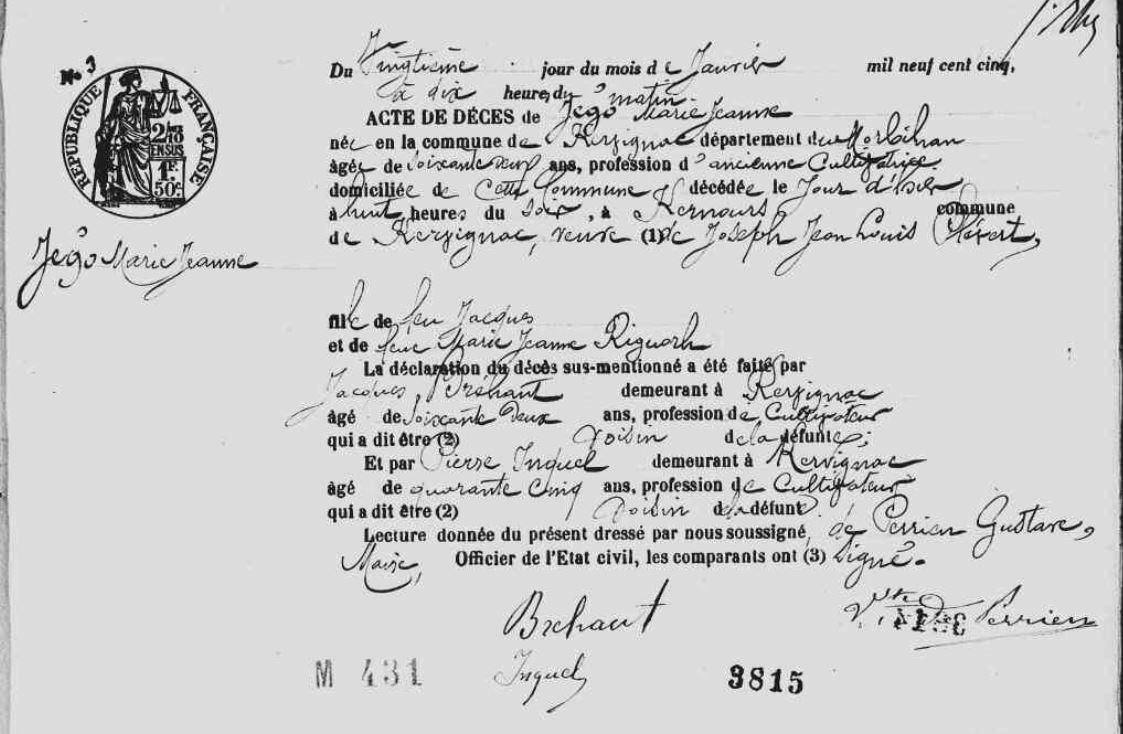 No 3
RÉPUBLIQUE FRANÇAISE
2/10 EN SUS
1 F. 50 c.
Jégo Marie Jeanne
Du Vingtième jour du mois de Janvier mil neuf cent cinq,
à dix heures du matin
ACTE DE DÉCES de Jégo Marie Jeanne
née en la commune de Kervignac département du Morbihan
âgée de soixante neuf ans, profession d'ancienne Cultivatrice
domiciliée de Cette Commune décédée le Jour d'hier
à huit heures du soir, à Kernours commune
de Kervignac, veuve (1) de Joseph Jean Louis
fille de feu Jacques
et de feue Marie Jeanne Riguorh
La déclaration du décès sus-mentionné a été faite par
Jacques Bréhaut demeurant à Kervignac
âgé de soixante Deux ans, profession de Cultivateur
qui a dit être (2) Voisin de la défunte;
Et par Pierre Inquel demeurant à Kervignac
âgé de quarante Cinq ans, profession de Cultivateur
qui a dit être (2) Voisin de la défunte.
Lecture donnée du présent dressé par nous soussigné, de Perrien Gustave,
Maire, Officier de l'Etat civil, les comparants ont (3) signé.
Brehaut
Vte de Perrien
Inquel
M 431
3815